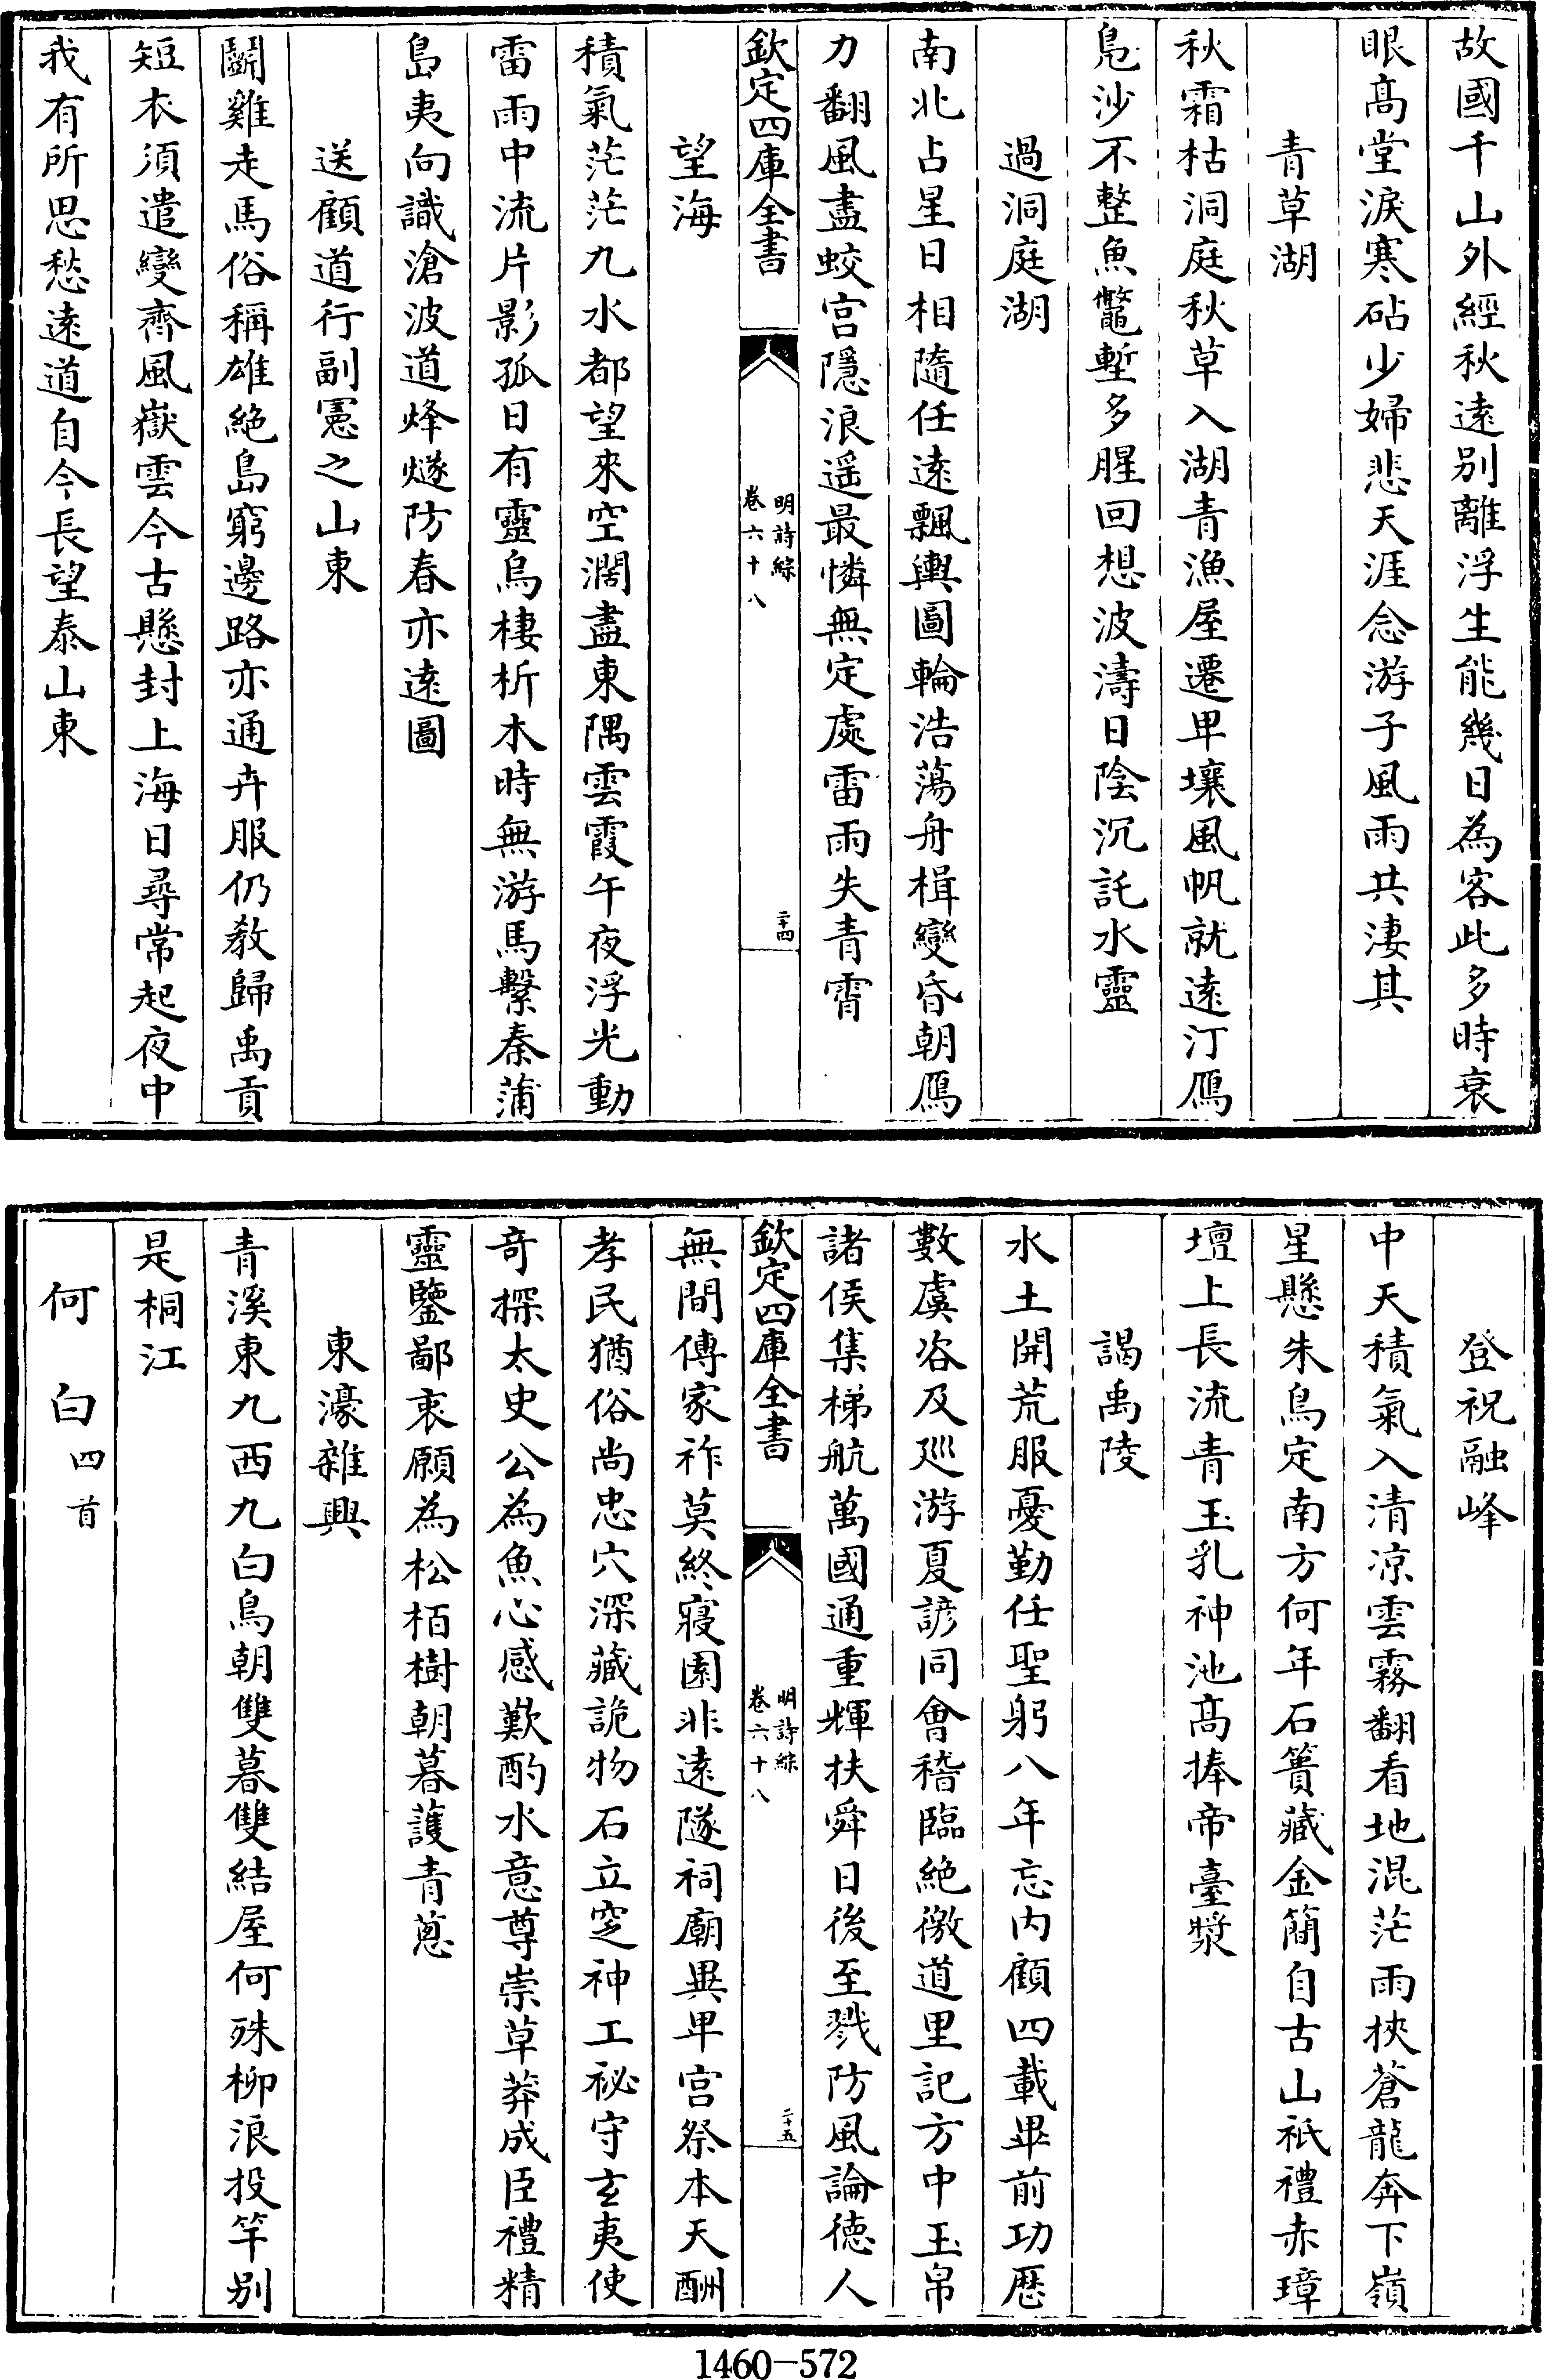 故國千山外經秋遠别離浮生能幾日為客此多時衰
眼髙堂淚寒砧少婦悲天涯念游子風雨共淒其
青草湖
秋霜枯洞庭秋草入湖青漁屋遷卑壤風帆就遠汀鴈
鳬沙不整魚鼈塹多腥回想波濤日陰沉託水靈
過洞庭湖
南北占星日相隨任遠飄輿圖輪浩蕩舟楫變昏朝鴈
力翻風盡蛟宫隱浪遥最憐無定處雷雨失青霄
欽定四庫全書
明詩綜
卷六十八
二十四
望海
積氣茫茫九水都望來空濶盡東隅雲霞午夜浮光動
雷雨中流片影孤日有靈烏棲析木時無游馬繫秦蒲
島夷向識滄波道烽燧防春亦遠圖
送顧道行副憲之山東
鬭雞走馬俗稱雄絶島窮邊路亦通卉服仍教歸禹貢
短衣須遣變齊風嶽雲今古懸封上海日尋常起夜中
我有所思愁遠道自今長望泰山東
登祝融峰
中天積氣入清凉雲霧翻看地混茫雨挾蒼龍奔下嶺
星懸朱鳥定南方何年石簣藏金簡自古山祇禮赤璋
壇上長流青玉乳神池髙捧帝臺漿
謁禹陵
水土開荒服憂勤任聖躬八年忘内顧四載畢前功厯
數虞咨及廵游夏諺同會稽臨絶徼道里記方中玉帛
諸侯集梯航萬國通重輝扶舜日後至戮防風論徳人
欽定四庫全書
明詩綜
卷六十八
二十五
無間傳家祚莫終寢園非遠隧祠廟異卑宫祭本天酬
孝民猶俗尚忠穴深藏詭物石立窆神工祕守玄夷使
奇探太史公為魚心感歎酌水意尊崇草莽成臣禮精
靈鑒鄙衷願為松栢樹朝暮護青蔥
東濠雜興
青溪東九西九白鳥朝雙暮雙結屋何殊柳浪投竿别
是桐江
何白四首
1460-572